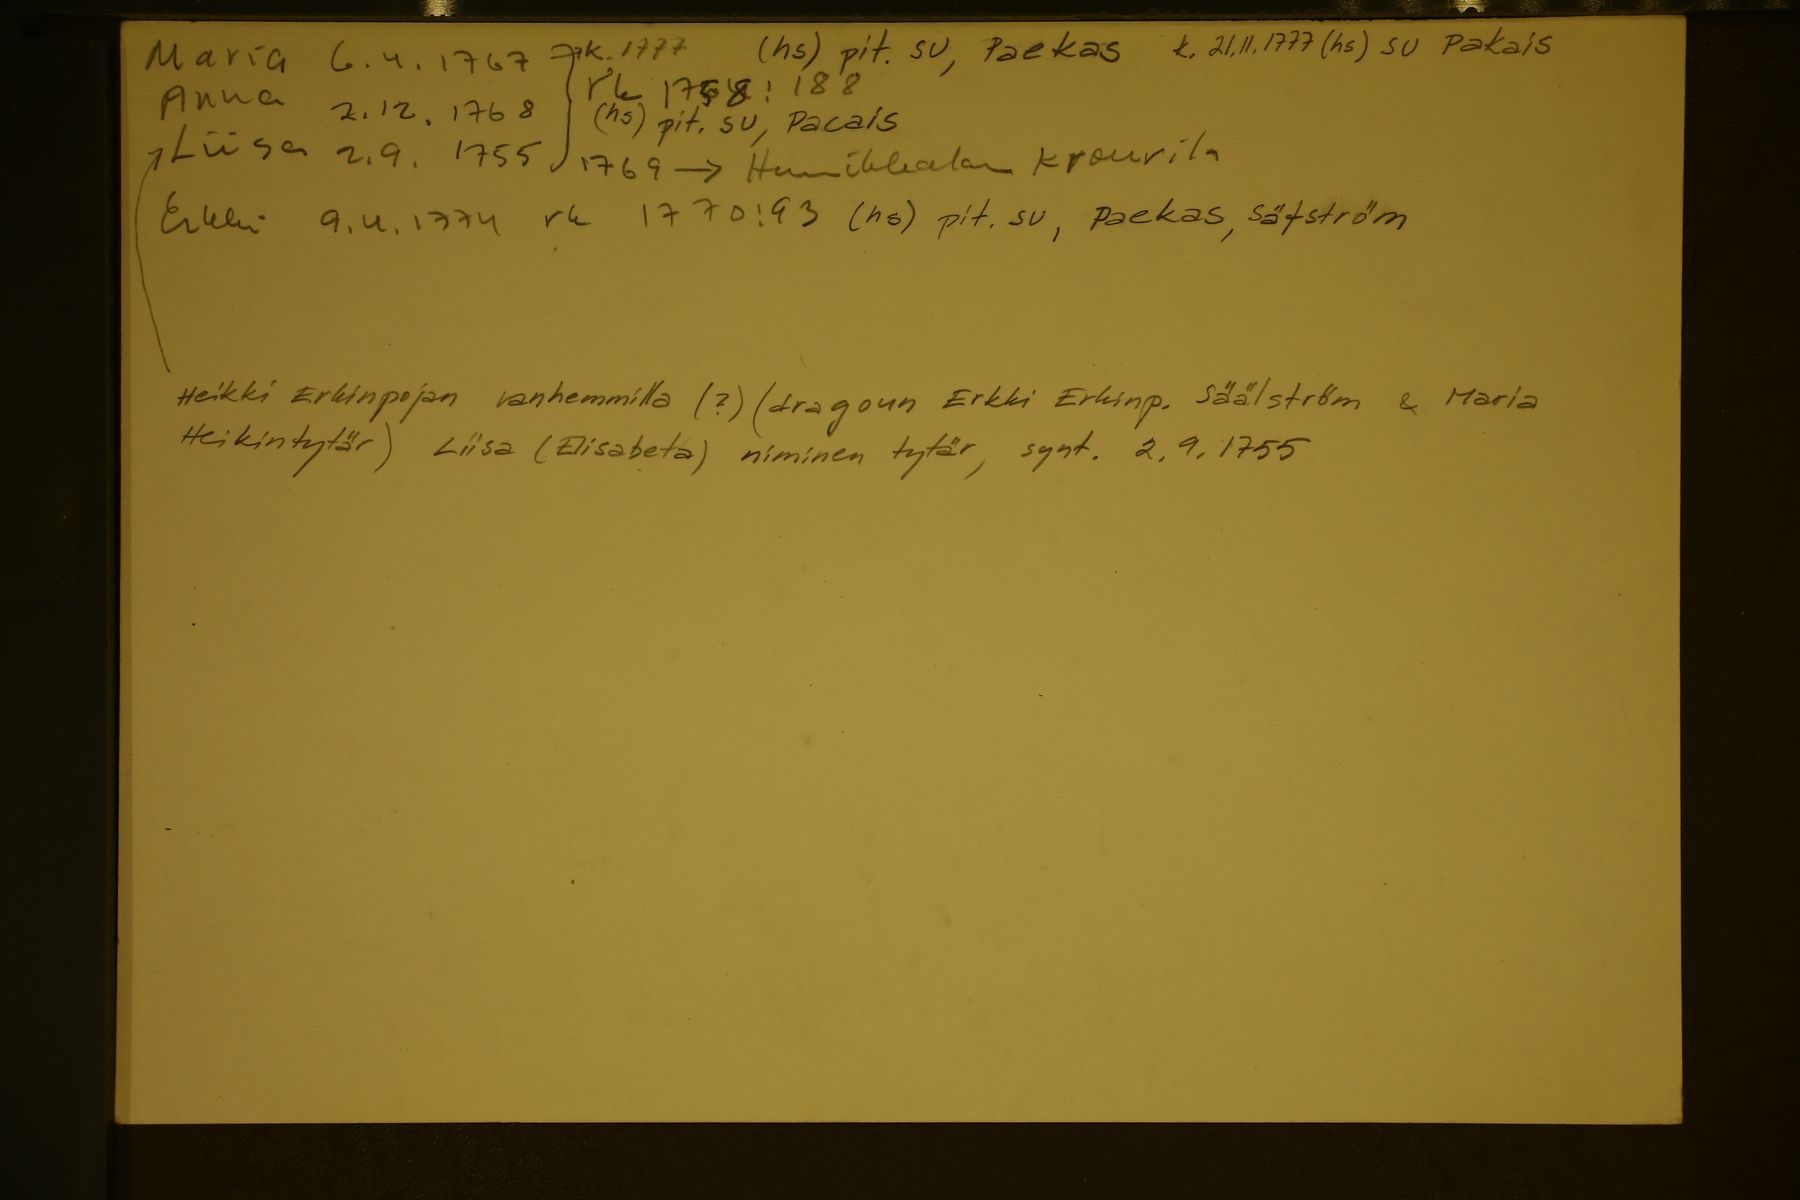 Maria 6.4.1767 → k. 1777 (hs) pit. su, Paekas k. 21.11.1777 (hs) su Pakais
Anna 2.12.1768 rk 1758:188
(hs) pit. su, Pacais
Liisa 2.9.1755 1769 → Krouvila
Erkki 9.4.1774 rk 1770:93 (hs) pit. su, Paekas, Säfström
Heikki Erkinpojan vanhemmilla (?) (dragoun Erkki Erkinp. Säälström & Maria
Heikintytär) Liisa (Elisabeta) niminen tytär, synt. 2.9.1755